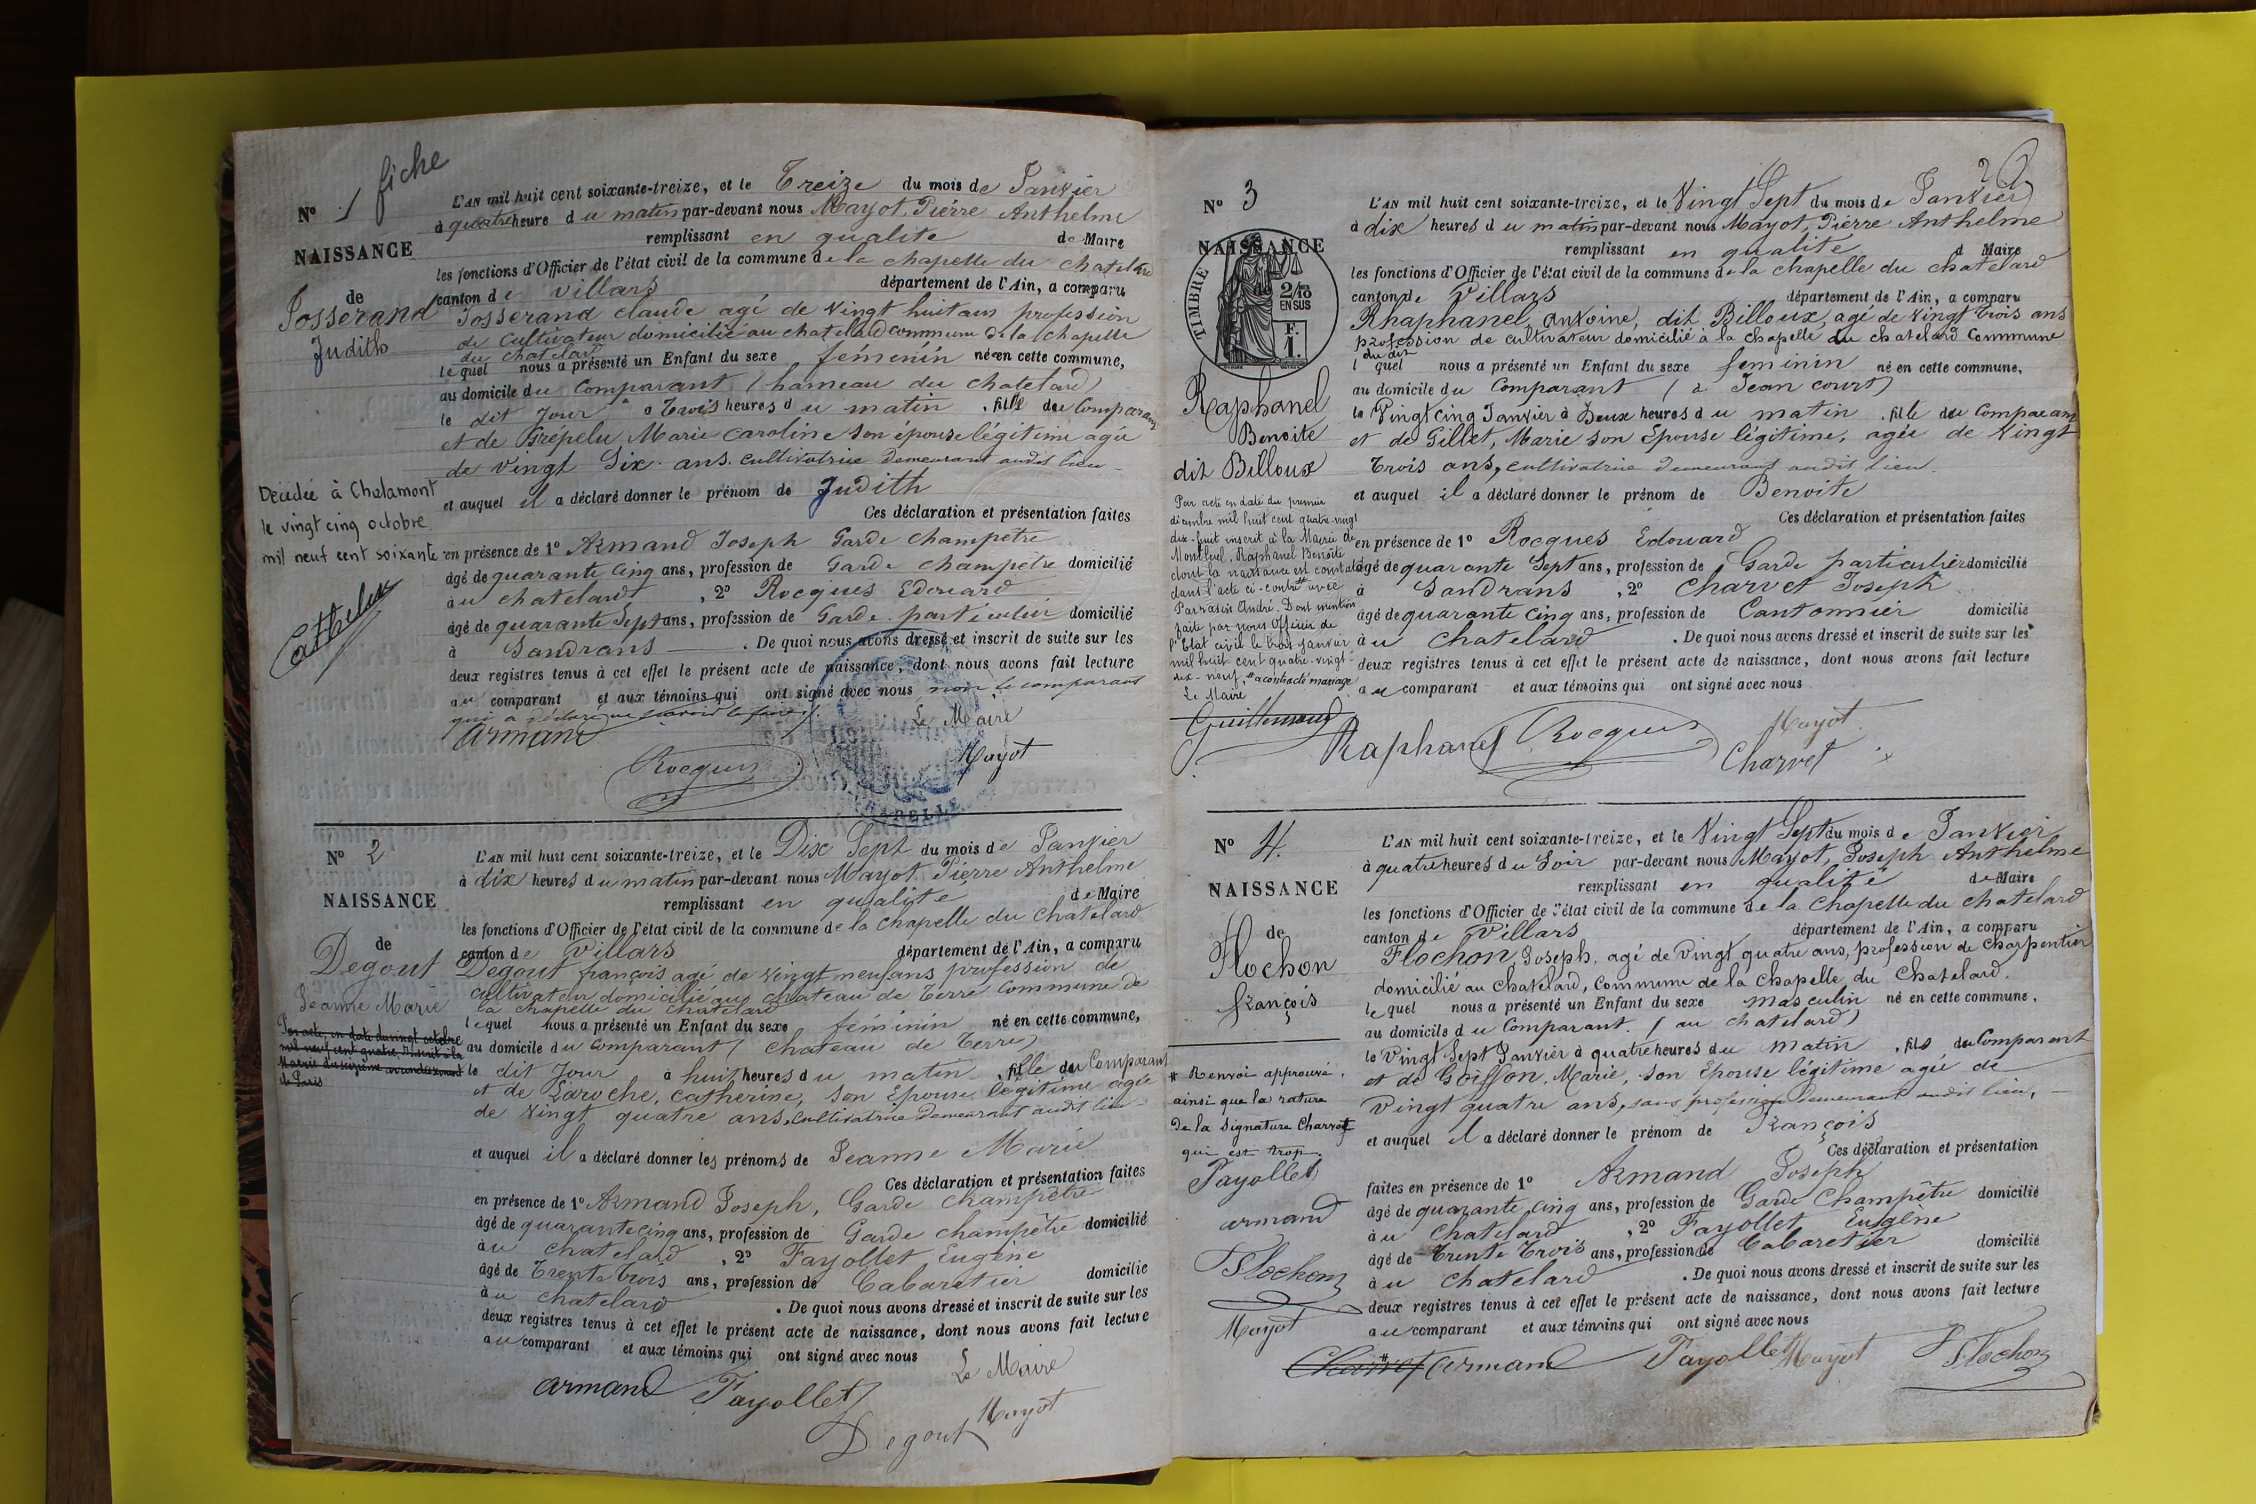 fiche
N° 1
NAISSANCE
de
Josserand
Judith
Décédée à Chalamont
le vingt cinq octobre
mil neuf cent soixante
L'AN mil huit cent soixante-treize, et le Treize du mois de Janvier
à quatre heure du matin par-devant nous Mayot, Pierre Anthelme
remplissant en qualité de Maire
les fonctions d'Officier de l'état civil de la commune de la chapelle du chatelard
canton de villars département de l'Ain, a comparu
Josserand claude agé de vingt huit ans profession
de cultivateur domicilié au chatelard commune de la chapelle
du chatelard
lequel nous a présenté un Enfant du sexe féminin né en cette commune,
au domicile du comparant (hameau du chatelard)
le dit Jour à Trois heures du matin, fille du Comparant
et de Grépelu Marie Caroline son épouse légitime agée
de vingt Six ans cultivatrice demeurant audit lieu
et auquel il a déclaré donner le prénom de Judith
Ces déclaration et présentation faites
en présence de 1° Armand Joseph Garde champêtre
âgé de quarante cinq ans, profession de Garde champêtre domicilié
au chatelard, 2° Rocques Edouard
âgé de quarante Sept ans, profession de Garde particulier domicilié
à Sandrans. De quoi nous avons dressé et inscrit de suite sur les
deux registres tenus à cet effet le présent acte de naissance, dont nous avons fait lecture
au comparant et aux témoins qui ont signé avec nous non le comparant
qui a déclaré ne savoir le faire
Le Maire
Armand
Rocques
Mayot
N° 2
NAISSANCE
de
Degout
Jeanne Marie
Par acte en date du vingt octobre
mil neuf cent quatre inscrit à la
Mairie du arrondissement
de Paris
L'AN mil huit cent soixante-treize, et le Dix Sept du mois de Janvier
à dix heures du matin par-devant nous Mayot, Pierre Anthelme
remplissant en qualité de Maire
les fonctions d'Officier de l'état civil de la commune de la chapelle du chatelard
canton de villars département de l'Ain, a comparu
Degout françois agé de vingt neuf ans profession de
cultivateur domicilié au chateau de Terre commune de
la chapelle du chatelard
lequel nous a présenté un Enfant du sexe féminin né en cette commune,
au domicile du comparant (chateau de Terre)
le dit Jour à huit heures du matin, fille du Comparant
et de Laroche, Catherine, son Epouse légitime agée
de vingt quatre ans, cultivatrice demeurant audit lieu
et auquel il a déclaré donner les prénoms de Jeanne Marie
Ces déclaration et présentation faites
en présence de 1° Armand Joseph, Garde champêtre
âgé de quarante cinq ans, profession de Garde champêtre domicilié
au chatelard, 2° Fayollet Eugène
âgé de Trente trois ans, profession de Cabaretier domicilié
au chatelard. De quoi nous avons dressé et inscrit de suite sur les
deux registres tenus à cet effet le présent acte de naissance, dont nous avons fait lecture
au comparant et aux témoins qui ont signé avec nous
Le Maire
Armand Fayollet
Degout Mayot
N° 3
NAISSANCE
de
TIMBRE
2/10
EN SUS
F.
1.
Raphanel
Benoite
dit Billoux
Par acte en date du premier
décembre mil huit cent quatre-vingt
dix-huit inscrit à la Mairie de
Montluel, Raphanel Benoîte
dont la naissance est constatée
dans l'acte ci-contre avec
André. Dont mention
faite par nous Officier de
l'Etat civil le trois janvier
mil huit cent quatre-vingt-
dix-neuf, *a contracté mariage
Le Maire
L'AN mil huit cent soixante-treize, et le Vingt Sept du mois de Janvier
à dix heures du matin par-devant nous Mayot, Pierre Anthelme
remplissant en qualité d Maire
les fonctions d'Officier de l'état civil de la commune de la chapelle du chatelard
canton de Villars département de l'Ain, a comparu
Rhaphanel, Antoine, dit Billoux, agé de vingt trois ans
profession de cultivateur domicilié à la chapelle du chatelard Commune
du dit
lequel nous a présenté un Enfant du sexe feminin né en cette commune,
au domicile du Comparant (à Jean court)
le Vingt cinq Janvier à Deux heures du matin, fille du Comparant
et de Gillet, Marie son Epouse légitime, agée de vingt
Trois ans, cultivatrice demeurant audit lieu.
et auquel il a déclaré donner le prénom de Benoite
Ces déclaration et présentation faites
en présence de 1° Rocques Edouard
âgé de quarante Sept ans, profession de Garde particulier domicilié
à Sandrans, 2° Charvet Joseph
âgé de quarante cinq ans, profession de Cantonnier domicilié
au chatelard. De quoi nous avons dressé et inscrit de suite sur les
deux registres tenus à cet effet le présent acte de naissance, dont nous avons fait lecture
au comparant et aux témoins qui ont signé avec nous
Raphanel Rocques Mayot
Charvet
N° 4.
NAISSANCE
de
Flochon
François
* Renvoi approuvé,
ainsi que la rature
de la signature Charvet
qui est trop.
Fayollet
Armand
Flochon
Mayot
L'AN mil huit cent soixante-treize, et le Vingt Sept du mois de Janvier
à quatre heures du Soir par-devant nous Mayot, Joseph Anthelme
remplissant en qualité de Maire
les fonctions d'Officier de l'état civil de la commune de la Chapelle du chatelard
canton de Villars département de l'Ain, a comparu
Flochon, Joseph, agé de vingt quatre ans, profession de Charpentier
domicilié au Chatelard, Commune de la Chapelle du Chatelard.
lequel nous a présenté un Enfant du sexe masculin né en cette commune,
au domicile du Comparant. (au chatelard)
le Vingt Sept Janvier à quatre heures du matin, fils du Comparant
et de Goiffon, Marie, son Epouse légitime agée de
Vingt quatre ans, sans profession demeurant audit lieu,
et auquel il a déclaré donner le prénom de François
Ces déclaration et présentation
faites en présence de 1° Armand Joseph
âgé de quarante cinq ans, profession de Garde Champêtre domicilié
au chatelard, 2° Fayollet Eugène
âgé de Trente Trois ans, profession de Cabaretier domicilié
au chatelard. De quoi nous avons dressé et inscrit de suite sur les
deux registres tenus à cet effet le présent acte de naissance, dont nous avons fait lecture
au comparant et aux témoins qui ont signé avec nous
Charvet Armand Fayollet Mayot Flochon